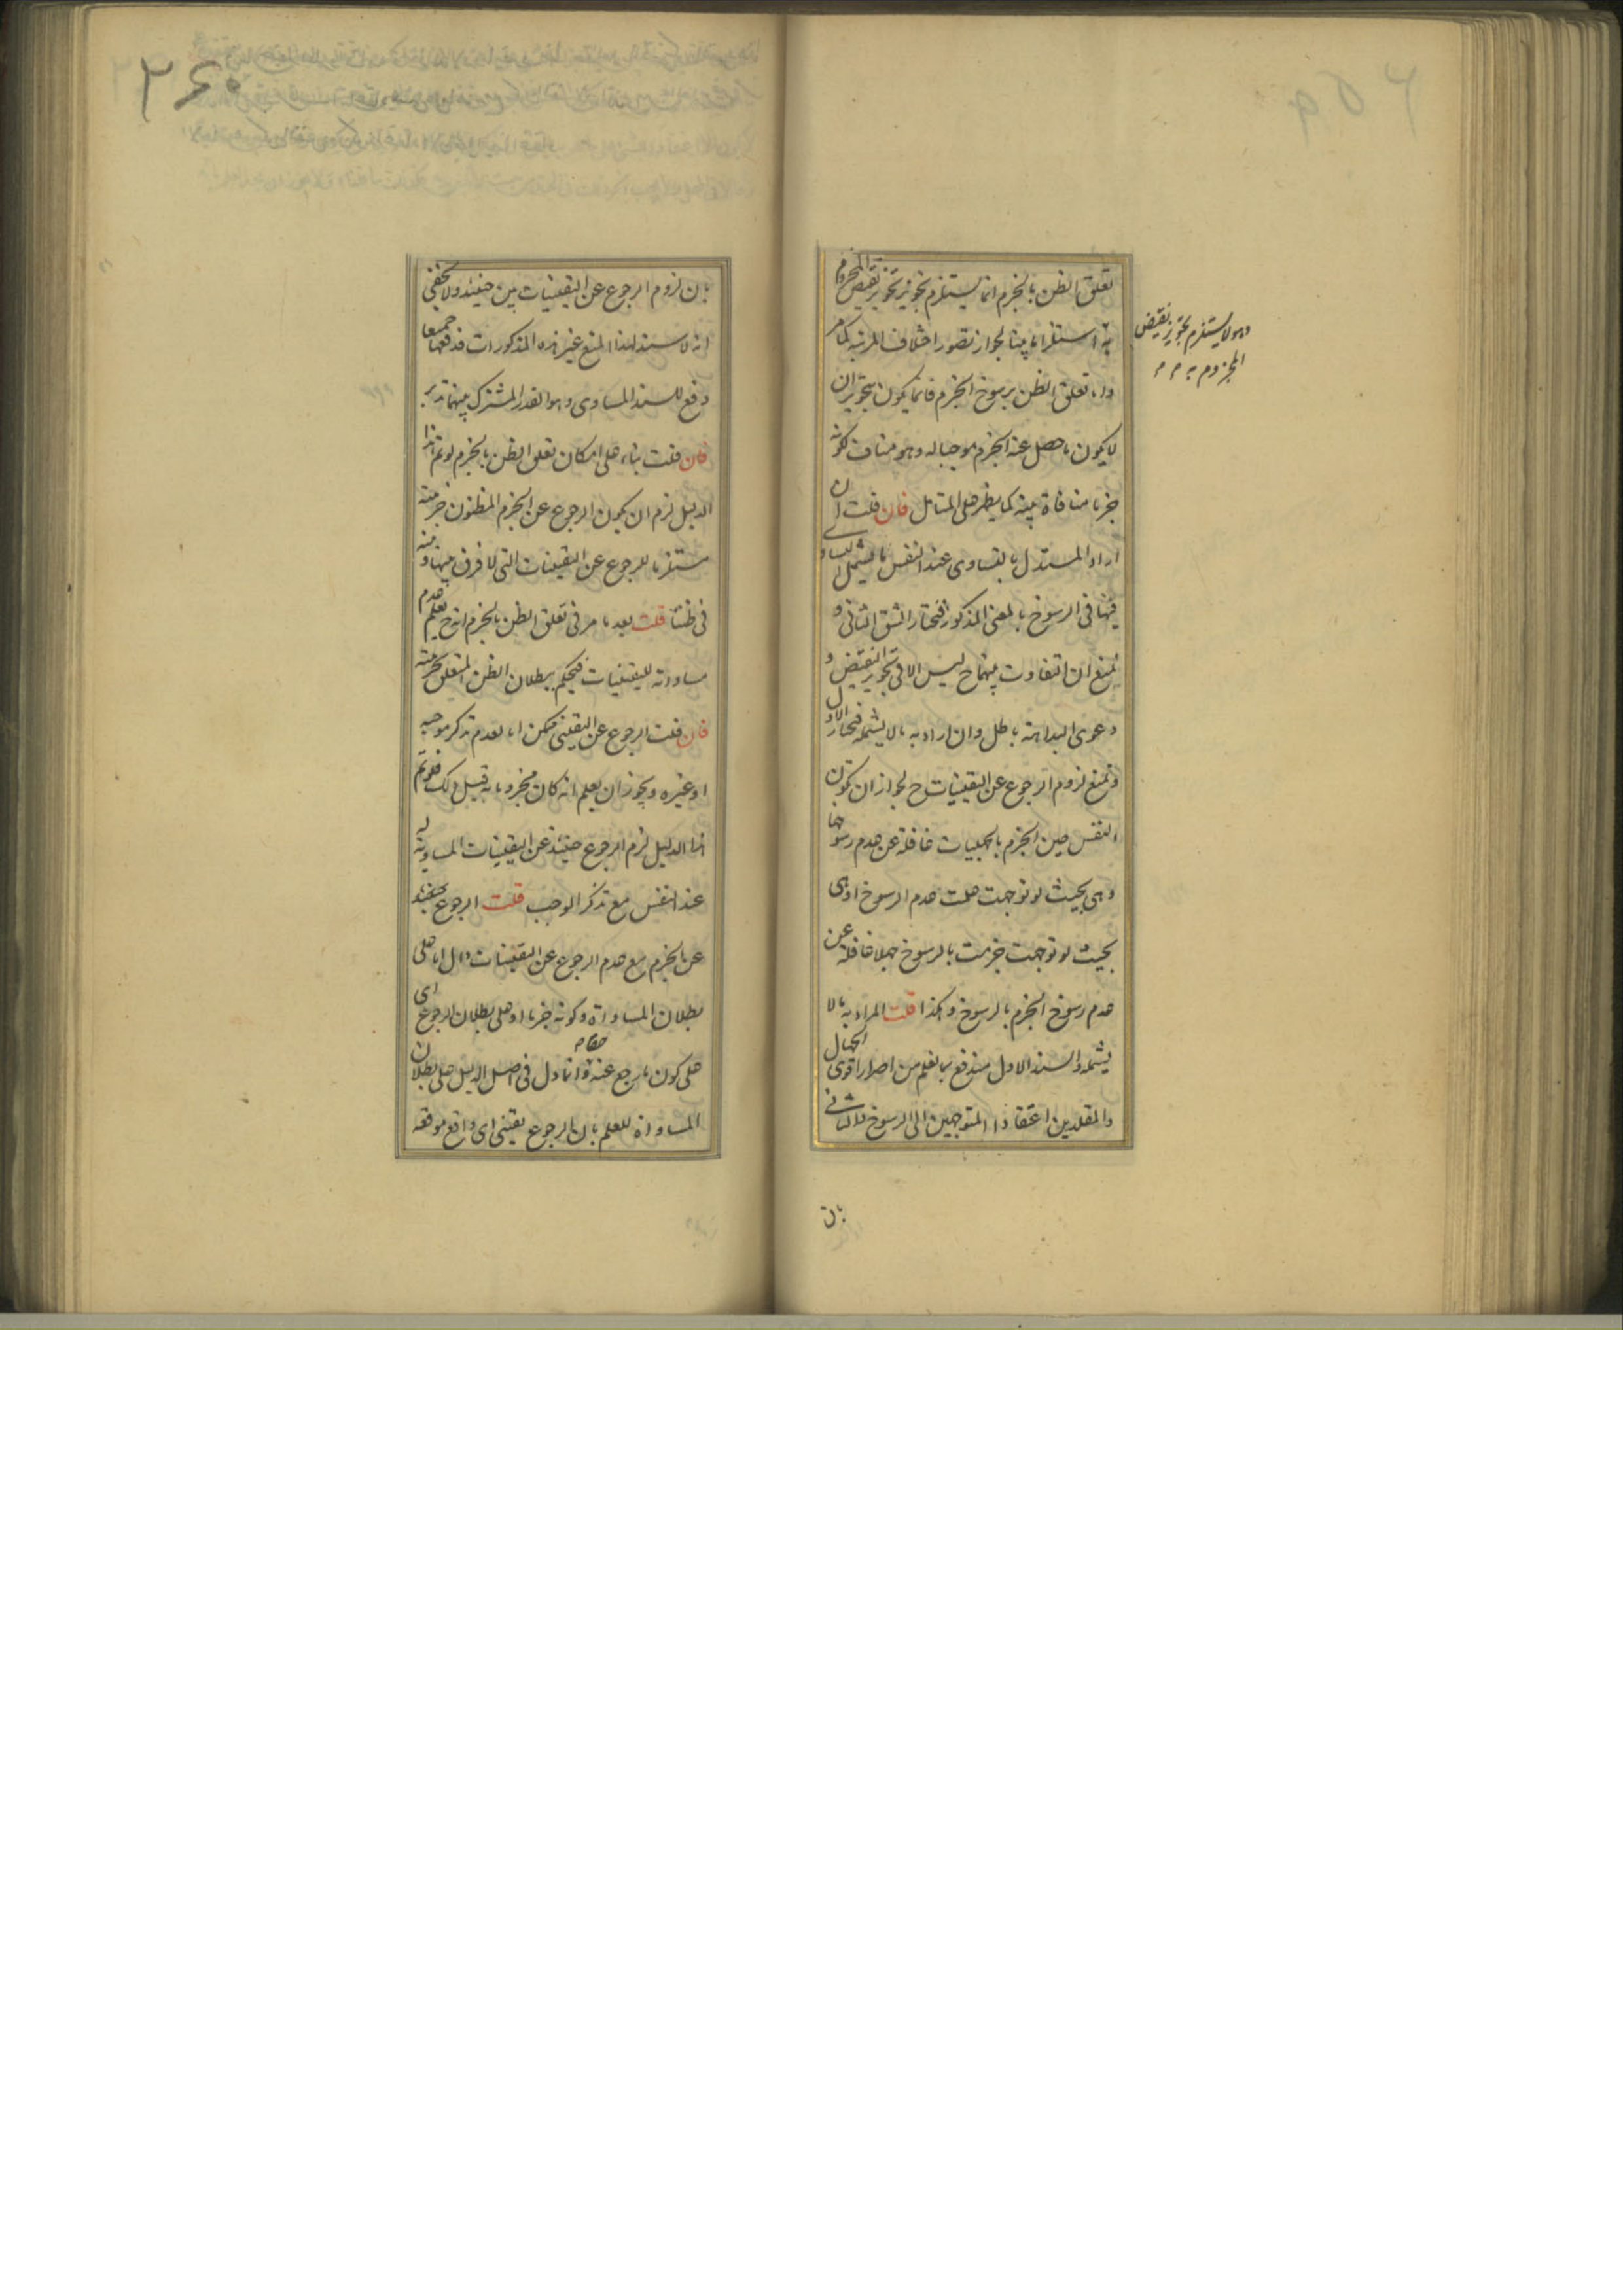 تعلق الظن بالجزم انما يستلزم تجويز تجويز نقيض المجزوم
به استلزاما بينا لجواز تصور اختلاف المرتبة كما مر
واما تعلق الظن برسوخ الجزم فانما يكون بتجويز ان
لا يكون ما حصل عنه الجزم موجبا له وهو مناف لكونه
جزما منافاة بينة كما يظهر على المتامل فان قلت ان
اراد المستدل بالتساوى عند النفس ما يشمل التساو
فيها فى الرسوخ بالمعنى المذكور فنختار الشق الثانى و
نمنع ان التفاوت بينهما ح ليس الا فى تجويز النقيض و
دعوى البداهة باطل وان اراد به ما لا يشمله فنختار الاول
ونمنع لزوم الرجوع عن اليقينيات ح لجواز ان تكون
النفس حين الجزم بالجهليات غافلة عن عدم رسوخها
وهى بحيث لو توجهت علمت عدم الرسوخ او هى
بحيث لو توجهت جزمت بالرسوخ جهلا غافلة عن
عدم رسوخ الجزم بالرسوخ وهكذا قلت المراد به ما لا
يشمله والسند الاول مندفع بما نعلم من اصرار اقوى الجهال
والمقلدين اعتقادا المتوجهين الى الرسوخ والثانى
بان
وهو لا يستلزم تجويز نقيض
المجزوم به
٢٤٠
بان لزوم الرجوع عن اليقينيات بين حينئذ ولا يخفى
انه لا سند لهذا المنع غير هذه المذكورات فدفعها جميعا
دفع للسند المساوى وهو القدر المشترك بينهما تدبر
فان قلت بناء على امكان تعلق الظن بالجزم لو تم هذا
الدليل لزم ان يكون الرجوع عن الجزم المظنون جزميته
مستلزما للرجوع عن اليقينيات التى لا فرق بينها و بينه
فى ظننا قلت بعد ما مر فى تعلق الظن بالجزم انه ح يعلم عدم
مساواته لليقينيات فيحكم ببطلان الظن المتعلق بجزميته
فان قلت الرجوع عن اليقينى ممكن اما لعدم تذكر موجبه
او غيره ويجوز ان يعلم انه كان مجزوما به قبل ذلك فلو تم
هذا الدليل لزم الرجوع حينئذ عن اليقينيات المساوية له
عند النفس مع تذكر الموجب قلت الرجوع حينئذ
عن الجزم مع عدم الرجوع عن اليقينيات دال اما على
بطلان المساواة وكونه جزما او على بطلان الرجوع اى
على كون ما رجع عنه حقا وانما دل فى اصل الدليل على بطلان
المساواة للعلم بان الرجوع يقينى اى واقع موقعه